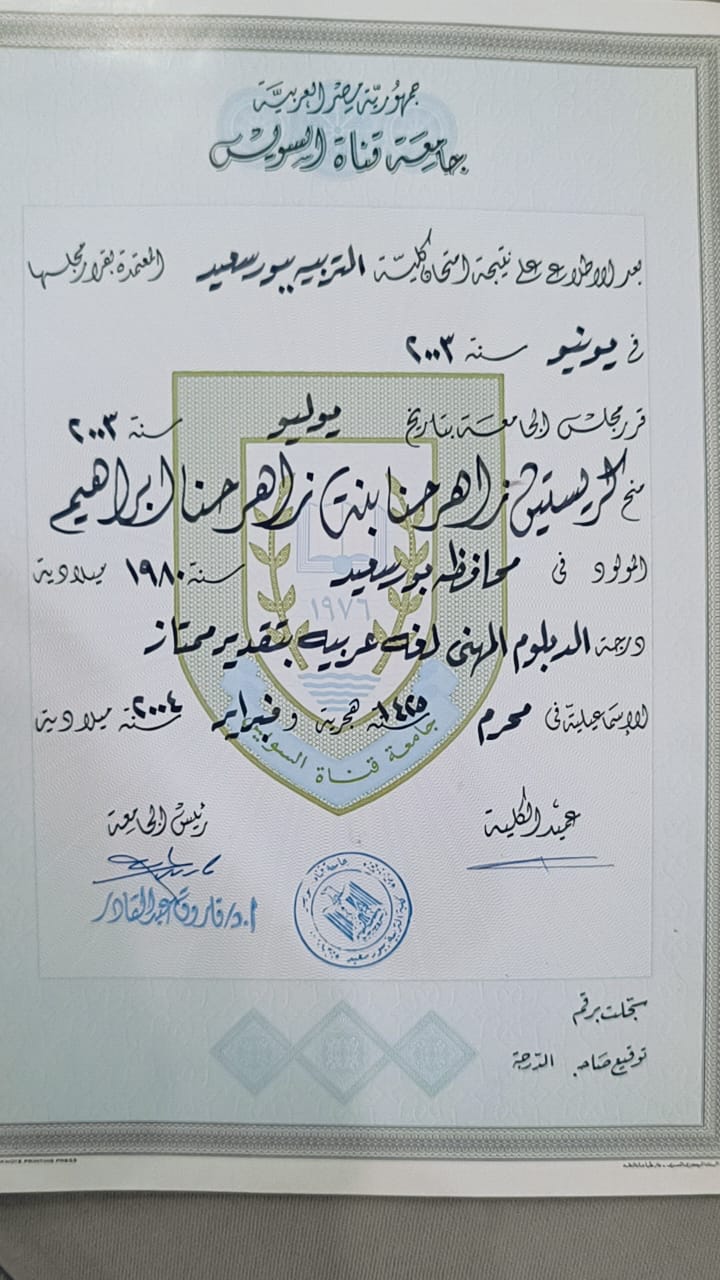 جمهورية مصر العربية
جامعة قناة السويس
بعد الاطلاع على نتيجة امتحان كلية التربيه ببورسعيد المعتمدة بقرار مجلسها
فى يونيو سنة ٢٠٠٣
قرر مجلس الجامعة بتاريخ يوليو سنة ٢٠٠٣
منح كريستين زاهر حنا ابنة زاهر حنا ابراهيم
المولود فى محافظه بورسعيد سنة ١٩٨٠ ميلادية
درجة الدبلوم المهنى لغه عربيه بتقدير ممتاز
الإسماعيلية فى محرم سنة ١٤٢٥ هجرية وفبراير سنة ٢٠٠٤ ميلادية
١٩٧٦
جامعة قناة السويس
عميد الكلية رئيس الجامعة
أ.د/ فاروق عبد القادر
سجلت برقم
توقيع صاحب الدرجة